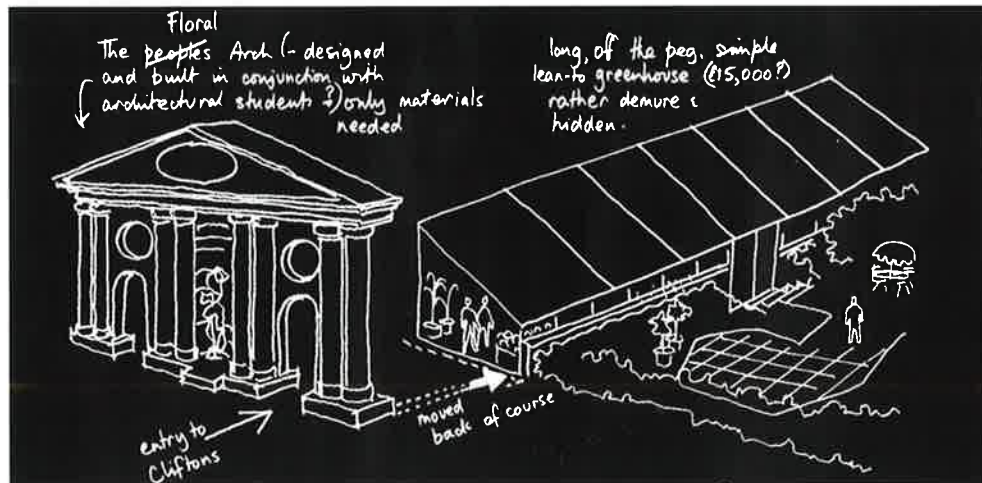 Floral
The peoples Arch (- designed
and built in conjunction with
architectural students ?) only materials
needed
long, off the peg, simple
lean-to greenhouse (£15,000?)
rather demure &
hidden.
entry to
Cliftons
moved
back of course